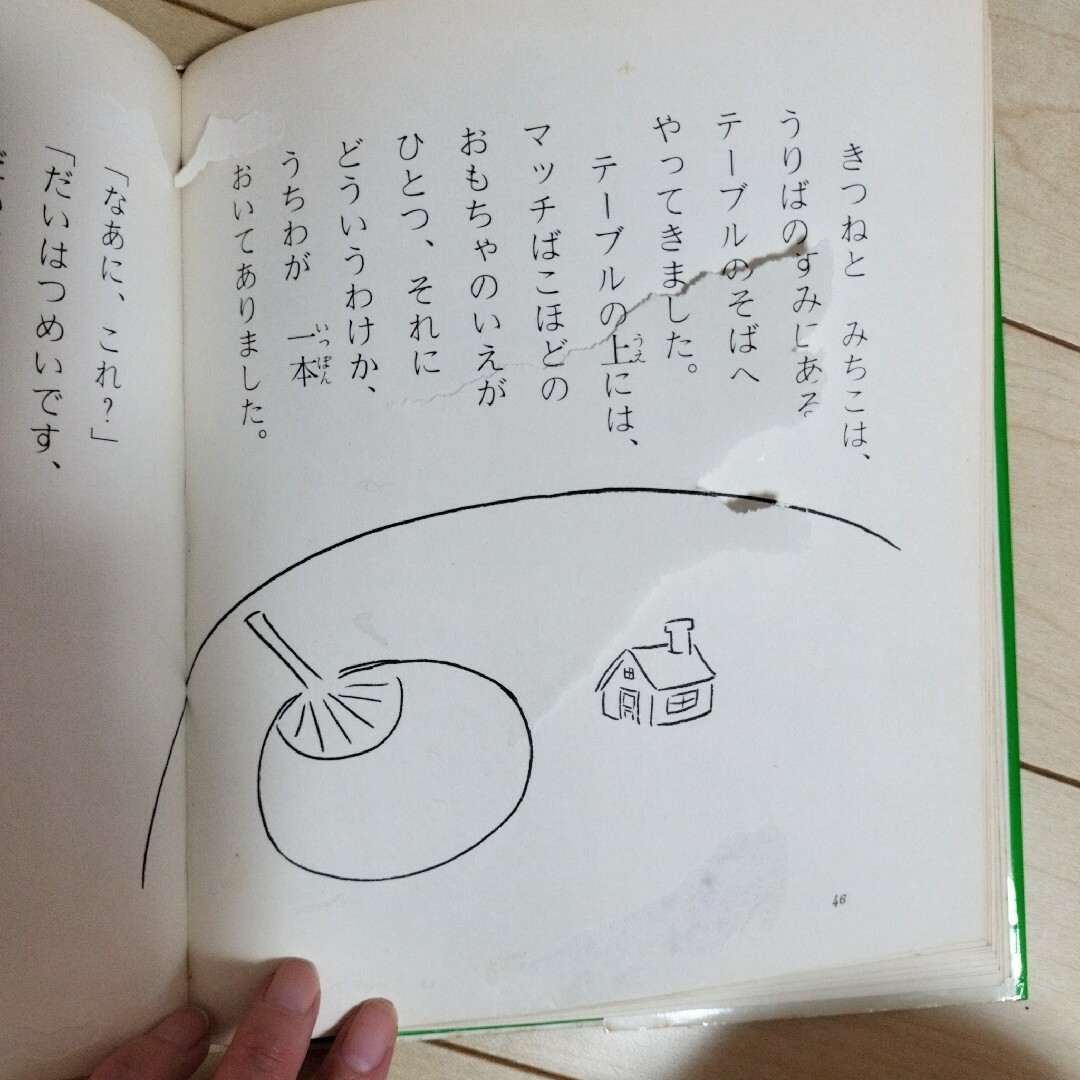 きつねと　みちこは、
うりばのすみにある
テーブルのそばへ
やってきました。
テーブルの上には、
うえ
マッチばこほどの
おもちゃのいえが
ひとつ、それに
どういうわけか、
うちわが　一本
いっぽん
おいてありました。
46
「なあに、これ?」
「だいはつめいです、